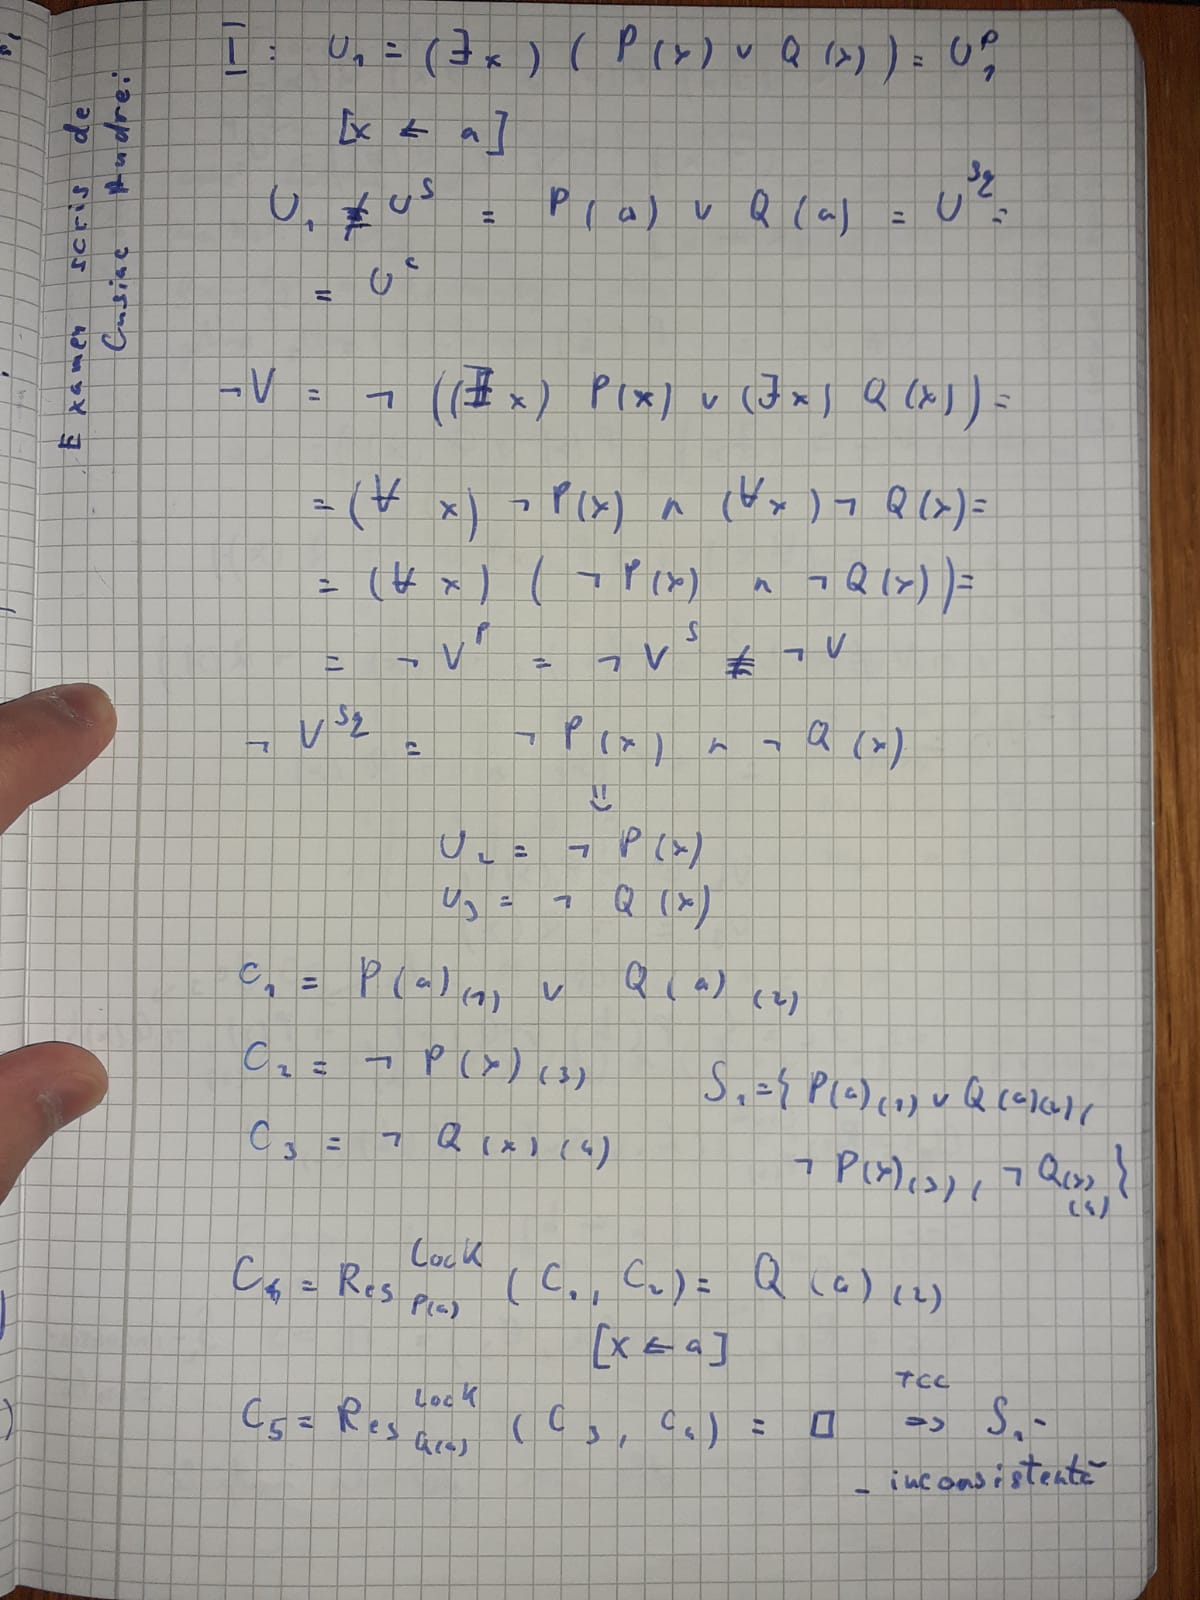 Examen scris de
Cusiac Andrei
I: U₁ = (∃x) (P(x) ∨ Q(x)) = U₁ᴾ
[x ← a]
U₁ ≢ Uˢ = P(a) ∨ Q(a) = U^Sq =
= Uᶜ
¬V = ¬((∃x) P(x) ∨ (∃x) Q(x)) =
= (∀x) ¬P(x) ∧ (∀x) ¬Q(x) =
= (∀x) (¬P(x) ∧ ¬Q(x)) =
= ¬Vᴾ = ¬Vˢ ≢ ¬V
¬V^Sq = ¬P(x) ∧ ¬Q(x)
⇓
U₂ = ¬P(x)
U₃ = ¬Q(x)
C₁ = P(a)₍₁₎ ∨ Q(a)₍₂₎
C₂ = ¬P(x)₍₃₎
C₃ = ¬Q(x)₍₄₎
S₁ = {P(a)₍₁₎ ∨ Q(a)₍₂₎,
¬P(x)₍₃₎, ¬Q(x)₍₄₎}
C₄ = Res^Lock_P(a) (C₁, C₂) = Q(a)₍₂₎
[x ← a]
C₅ = Res^Lock_Q(a) (C₃, C₄) = □ TCC ⇒ S₁ -
- inconsistentă